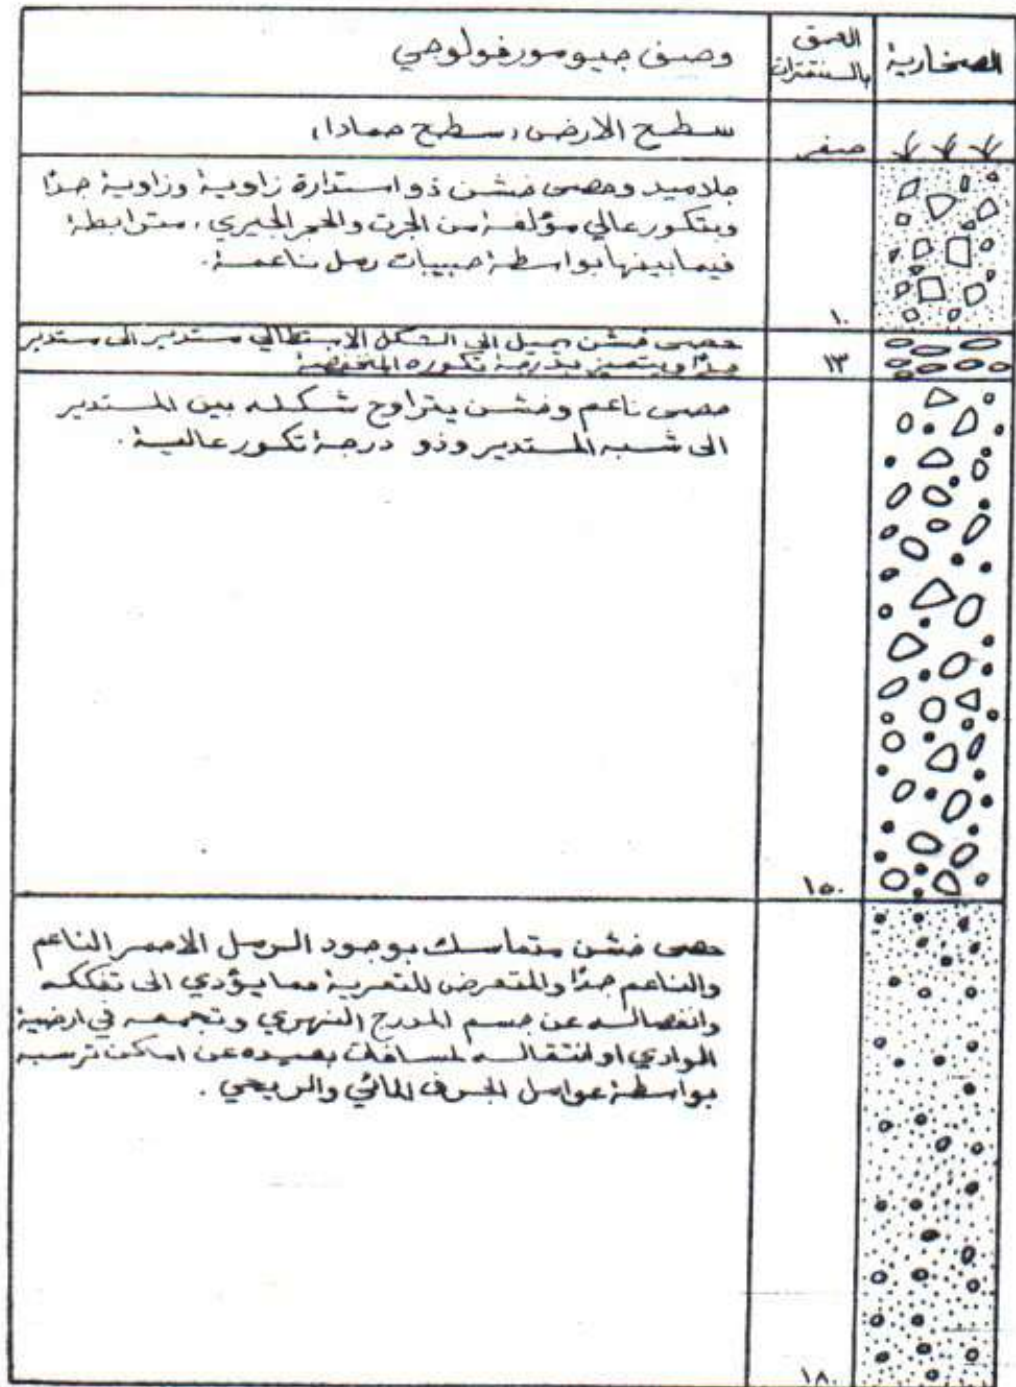 الصخارية
العمق بالسنتمترات
وصف جيومورفولوجي
صفر
سطح الارض، سطح حمادا،
جلاميد وحصى خشن ذو استدارة زاوية وزاوية جدًا
وبتكور عالي مؤلفة من الجرت والحجر الجيري، مترابطة
فيما بينها بواسطة حبيبات رمل ناعمة.
١٠
حصى خشن يميل الى الشكل الاستطالي مستدير الى مستدير
جدًا ويتميز بدرجة تكوره المنخفضة
١٣
حصى ناعم وخشن يتراوح شكله بين المستدير
الى شبه المستدير وذو درجة تكور عالية.
١٥٠
حصى خشن متماسك بوجود الرمل الاحمر الناعم
والناعم جدًا والمتعرض للتعرية مما يؤدي الى تفككه
وانفصاله عن جسم المدرج النهري وتجمعه في ارضية
الوادي او انتقاله لمسافات بعيده عن اماكن ترسبه
بواسطة عوامل الجرف المائي والريحي.
١٨٠